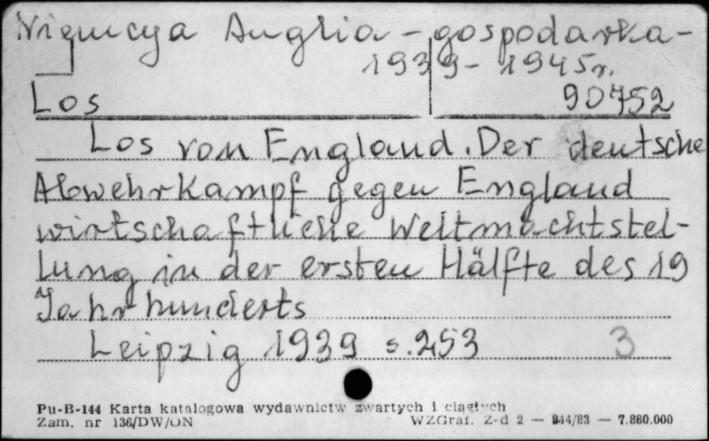 Niemcya Anglia - gospodarka -
1939 - 1945 r.
Los 90752
Los von England. Der deutsche
Abwehrkampf gegen England
wirtschaftliche Weltmachtstel-
lung in der ersten Hälfte des 19
Jahrhunderts
Leipzig 1939 s. 253 3
Pu-B-144 Karta katalogowa wydawnictw zwartych i ciągłych
Zam. nr 136/DW/ON WZGraf. Z-d 2 — 844/83 — 7.880.000